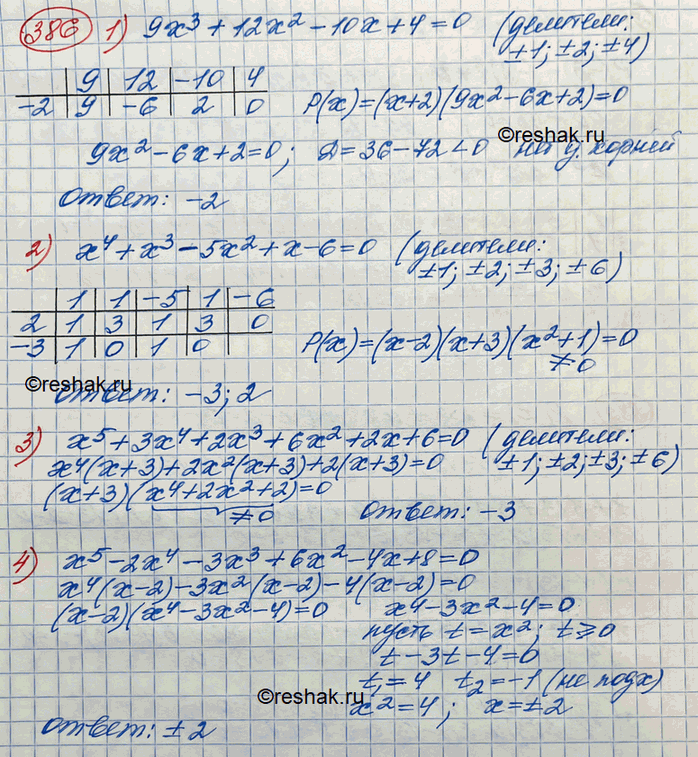 386 1) 9x³ + 12x² - 10x + 4 = 0 (делители:
±1; ±2; ±4)
9 12 -10 4
-2 9 -6 2 0 P(x) = (x+2)(9x² - 6x + 2) = 0
©reshak.ru
9x² - 6x + 2 = 0; D = 36 - 72 < 0 корней
ответ: -2
2) x⁴ + x³ - 5x² + x - 6 = 0 (делители:
±1; ±2; ±3; ±6)
1 1 -5 1 -6
2 1 3 1 3 0
-3 1 0 1 0 P(x) = (x-2)(x+3)(x²+1) = 0
≠0
©reshak.ru
ответ: -3; 2
3) x⁵ + 3x⁴ + 2x³ + 6x² + 2x + 6 = 0 (делители:
x⁴(x+3) + 2x²(x+3) + 2(x+3) = 0 ±1; ±2; ±3; ±6)
(x+3)(x⁴ + 2x² + 2) = 0
≠0 ответ: -3
4) x⁵ - 2x⁴ - 3x³ + 6x² - 4x + 8 = 0
x⁴(x-2) - 3x²(x-2) - 4(x-2) = 0
(x-2)(x⁴ - 3x² - 4) = 0 x⁴ - 3x² - 4 = 0
пусть t = x²; t ≥ 0
t - 3t - 4 = 0
t₁ = 4 t₂ = -1 (не подх)
©reshak.ru x² = 4; x = ±2
ответ: ±2